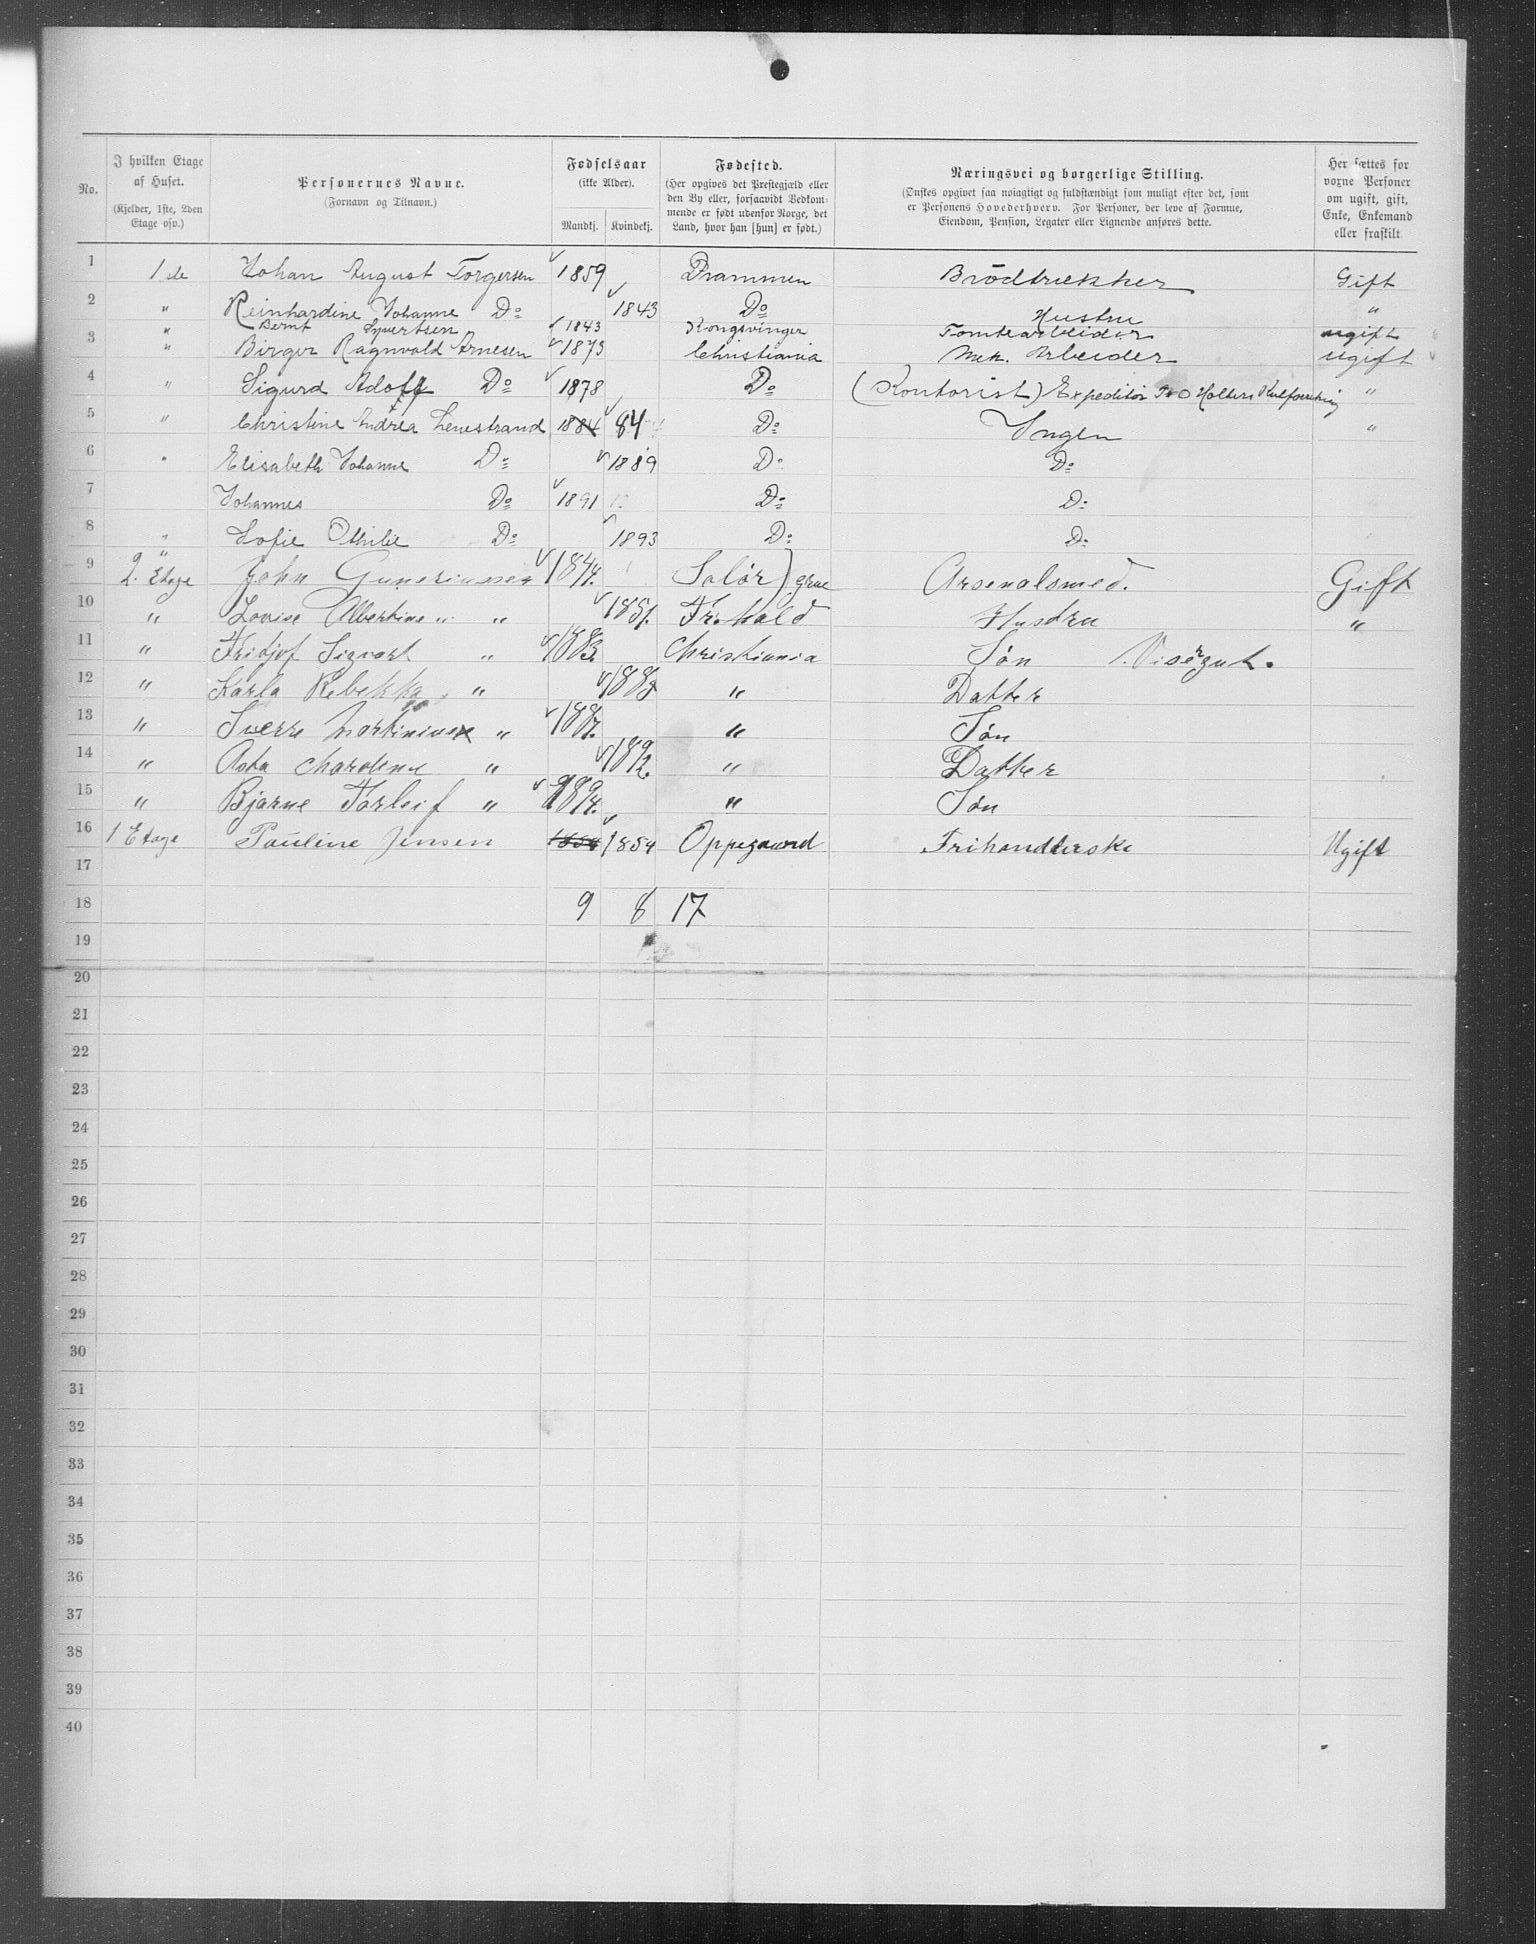 No.
I hvilken Etage af Huset.
(Kjelder, 1ste, 2den Etage osv.)
Personernes Navne.
(Fornavn og Tilnavn.)
Fødselsaar
(ikke Alder).
Mandkj. Kvindekj.
Fødested.
(Her opgives det Prestegjæld eller den By eller, forsaavidt Vedkommende er født udenfor Norge, det Land, hvor han [hun] er født.)
Næringsvei og borgerlige Stilling.
(Ønskes opgivet saa nøiagtigt og fuldstændigt som muligt efter det, som er Personens Hovederhverv. For Personer, der leve af Formue, Eiendom, Pension, Legater eller Lignende anføres dette.
Her sættes for voxne Personer om ugift, gift, Enke, Enkemand eller fraskilt
1 1ste Johan August Torgersen 1859 Drammen Brödtrekker Gift
2 " Reinhardine Johanne Do 1843 Do Hustru "
" Bernt Syvertsen 1843 Kongsvinger Tomtearbeider ugift
3 " Birger Ragnvald Arnesen 1873 Christiania Mek. Arbeider ugift
4 " Sigurd Adolf Do 1878 Do (Kontorist) Expeditör "
5 " Christine Andrea Lenestrand 1884 84 Do Ingen "
6 " Elisabeth Johanne Do 1889 Do Do
7 Johannes Do 1891 Do Do
8 " Sofie Othilie Do 1893 Do Do
9 2. Etage John Guneriussen 1844. Solör) grue Arsenalsmed. Gift
10 " Lovise Albertine " " 1851. Fr.hald Hustru "
11 " Fridjof Sigvart " 1883 Christiania Søn Visergut.
12 " Karla Rebekka " 188 " Datter
13 " Sverre Martinius " 1887. " Søn
14 " Asta Maroline " 1892. " Datter
15 " Bjarne Torleif " 1894. " Søn
16 1 Etage Pauline Jensen 1854 1854 Oppegaard Frihandlerske Ugift
17
18 9 8 17
19
20
21
22
23
24
25
26
27
28
29
30
31
32
33
34
35
36
37
38
39
40